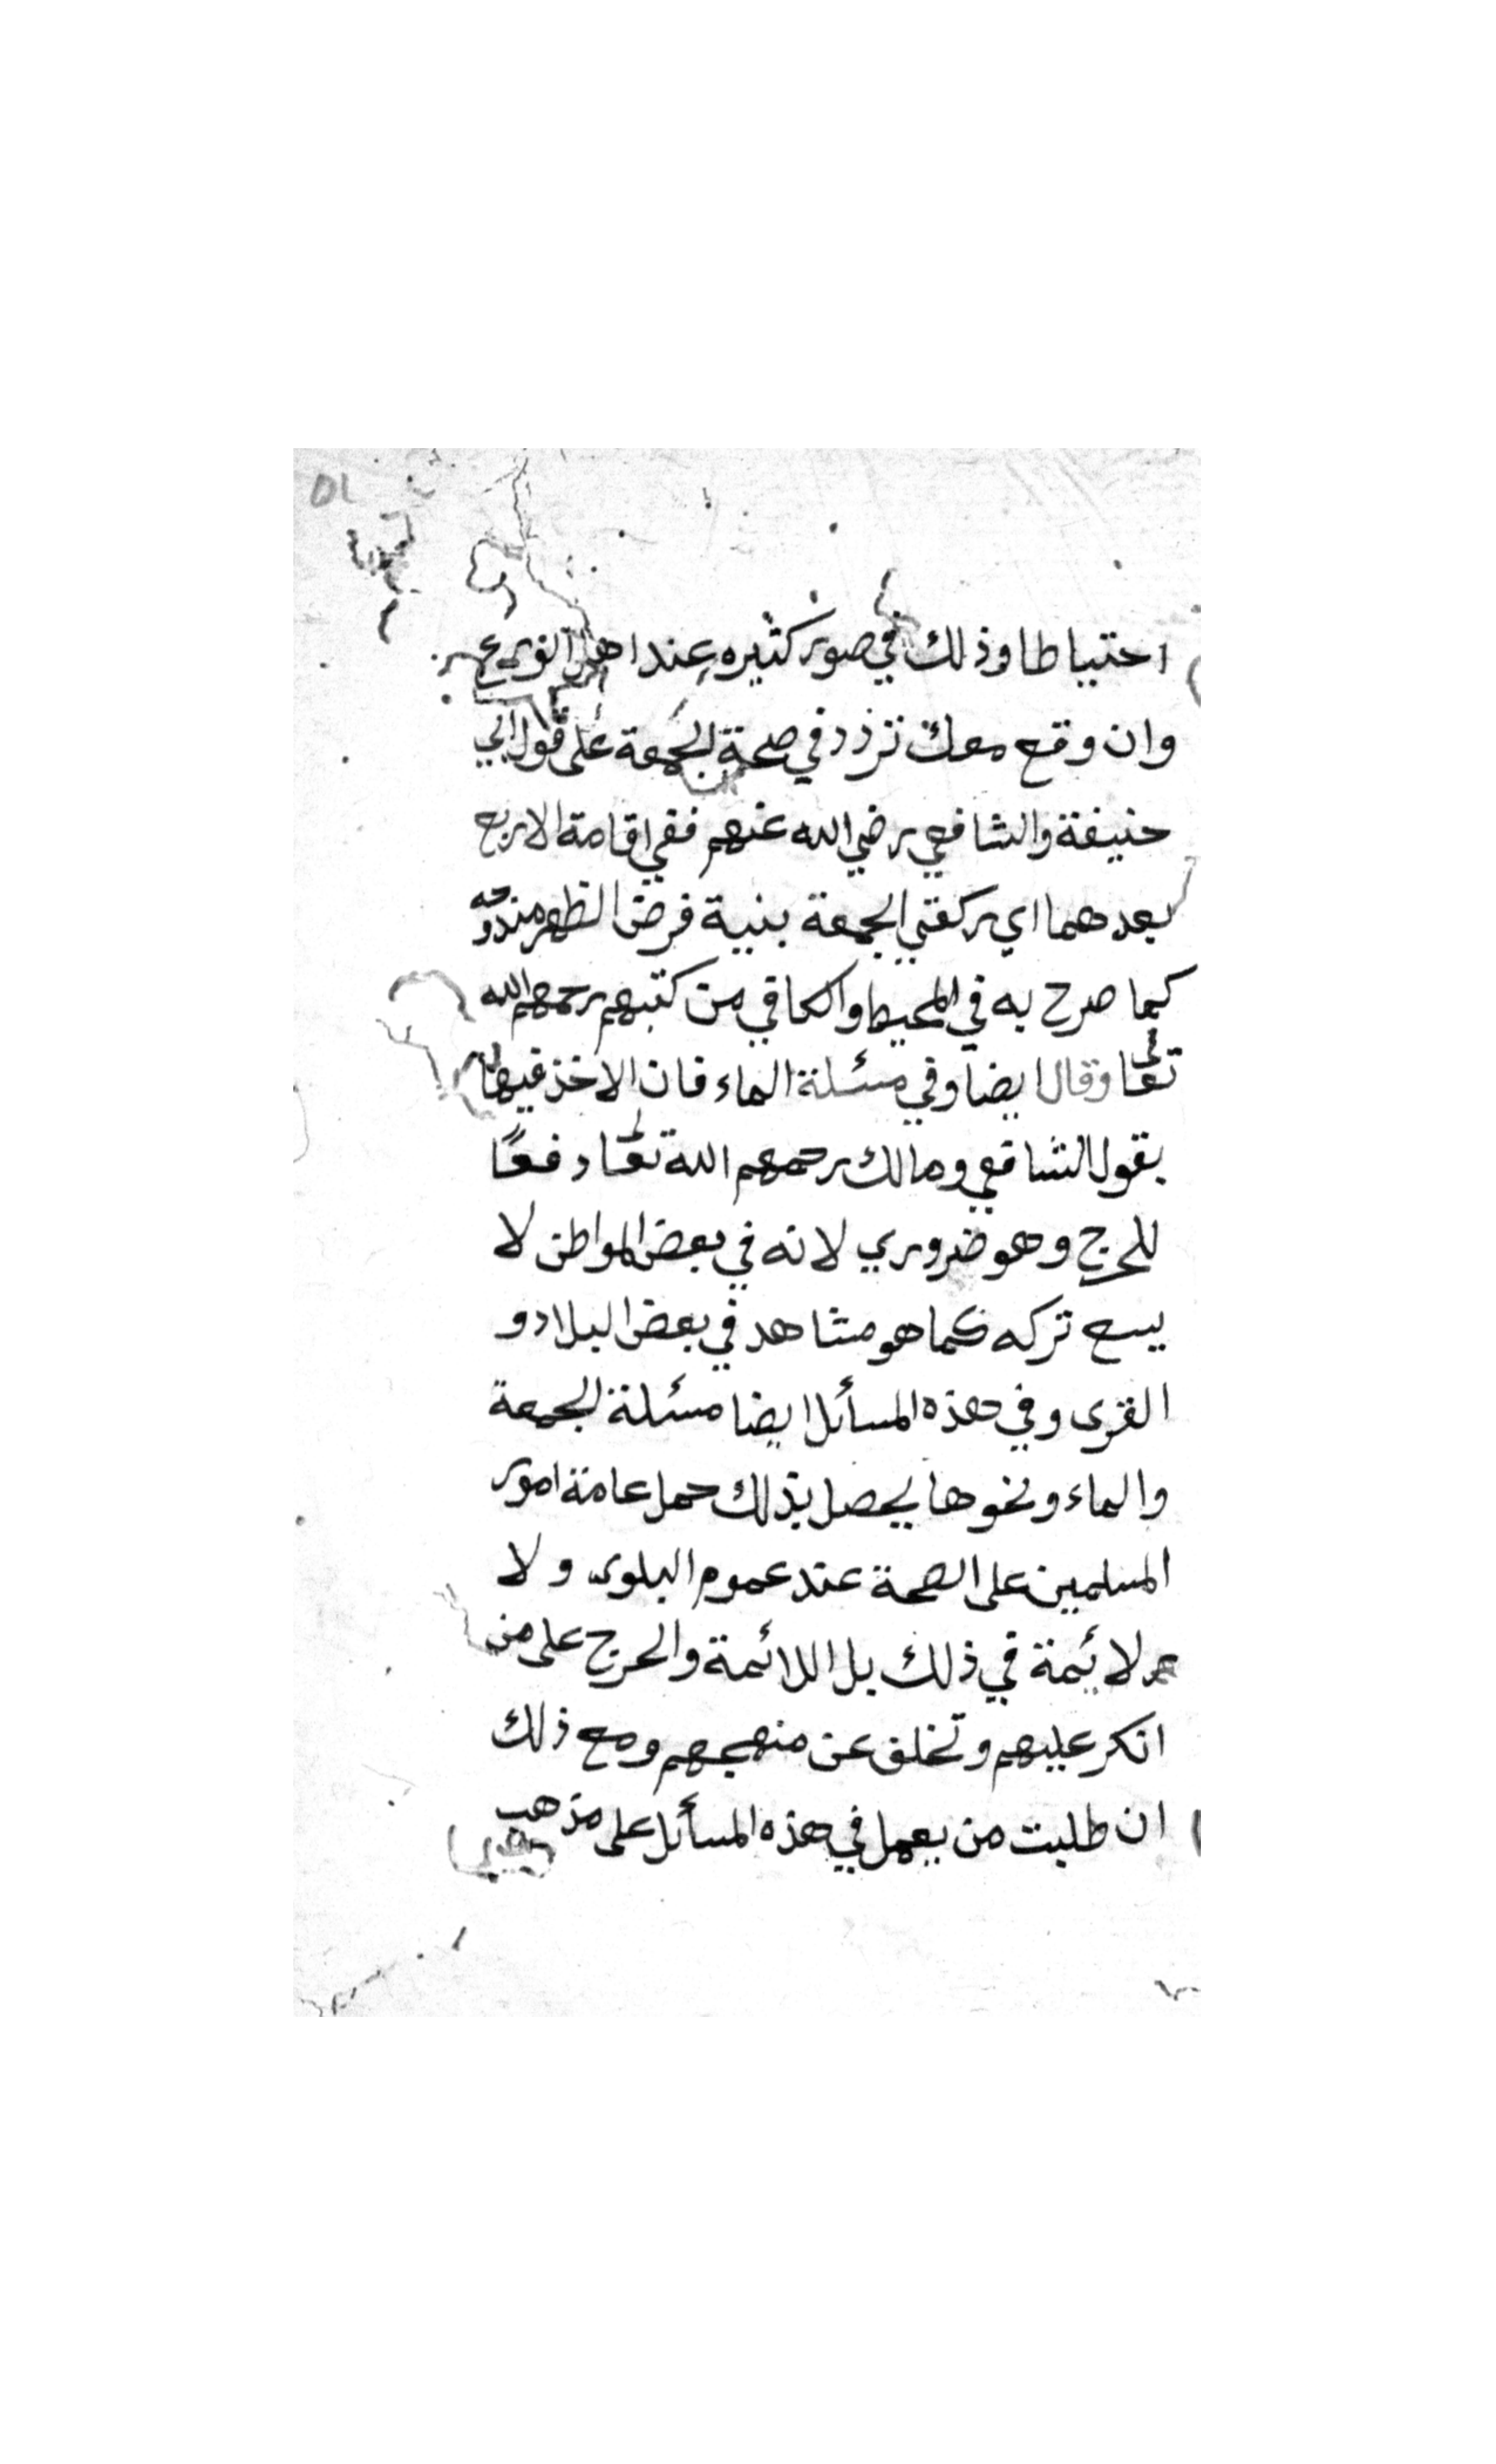 احتياطا وذلك في صور كثيره عند اهل الورع
وان وقع معك تردد في صحة الجمعة على قول ابي
حنيفة والشافعي رضي الله عنهم ففي اقامة الاربع
بعدهما اي ركعتي الجمعة بنية فرض الظهر مندوحه
كما صرح به في المحيط والكافي من كتبهم رحمهم الله
تعالى وقال ايضا وفي مسئلة الماء فان الاخذ فيها
بقول الشافعي ومالك رحمهم الله تعالى دفعًا
للحرج وهو ضروري لانه في بعض المواطن لا
يسع تركه كما هو مشاهد في بعض البلاد و
القرى وفي هذه المسائل ايضا مسئلة الجمعة
والماء ونحوها يحصل بذلك حمل عامة امور
المسلمين على الصحة عند عموم البلوى ولا
لائمة في ذلك بل اللائمة والحرج على من
انكر عليهم وتخلف عن منهجهم ومع ذلك
ان طلبت من يعمل في هذه المسائل على مذهب